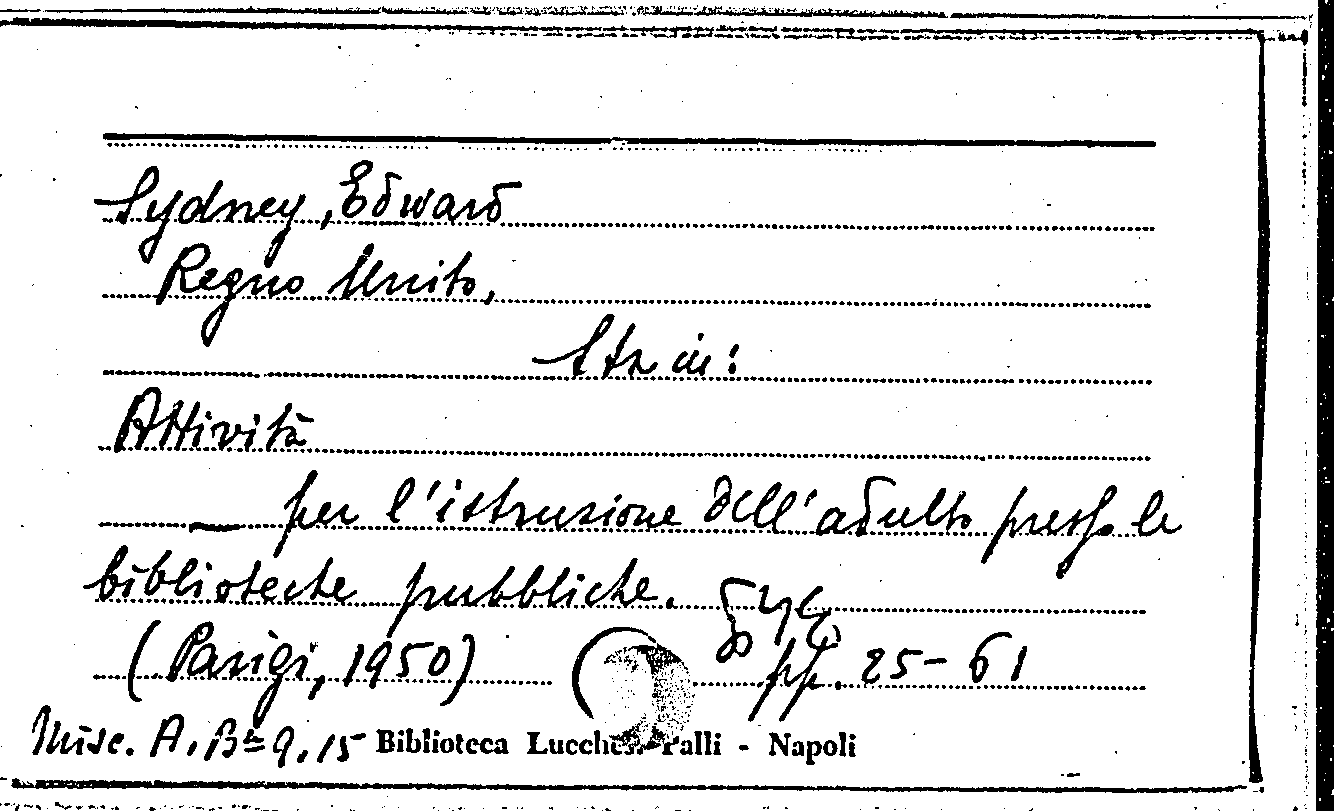 Sydney, Edward
Regno Unito,
Sta in:
Attività
per l'istruzione dell'adulto presso le
biblioteche pubbliche.
(Parigi, 1950) pp. 25-61
Misc. A. Bª 9. 15 Biblioteca Lucchesi Palli - Napoli